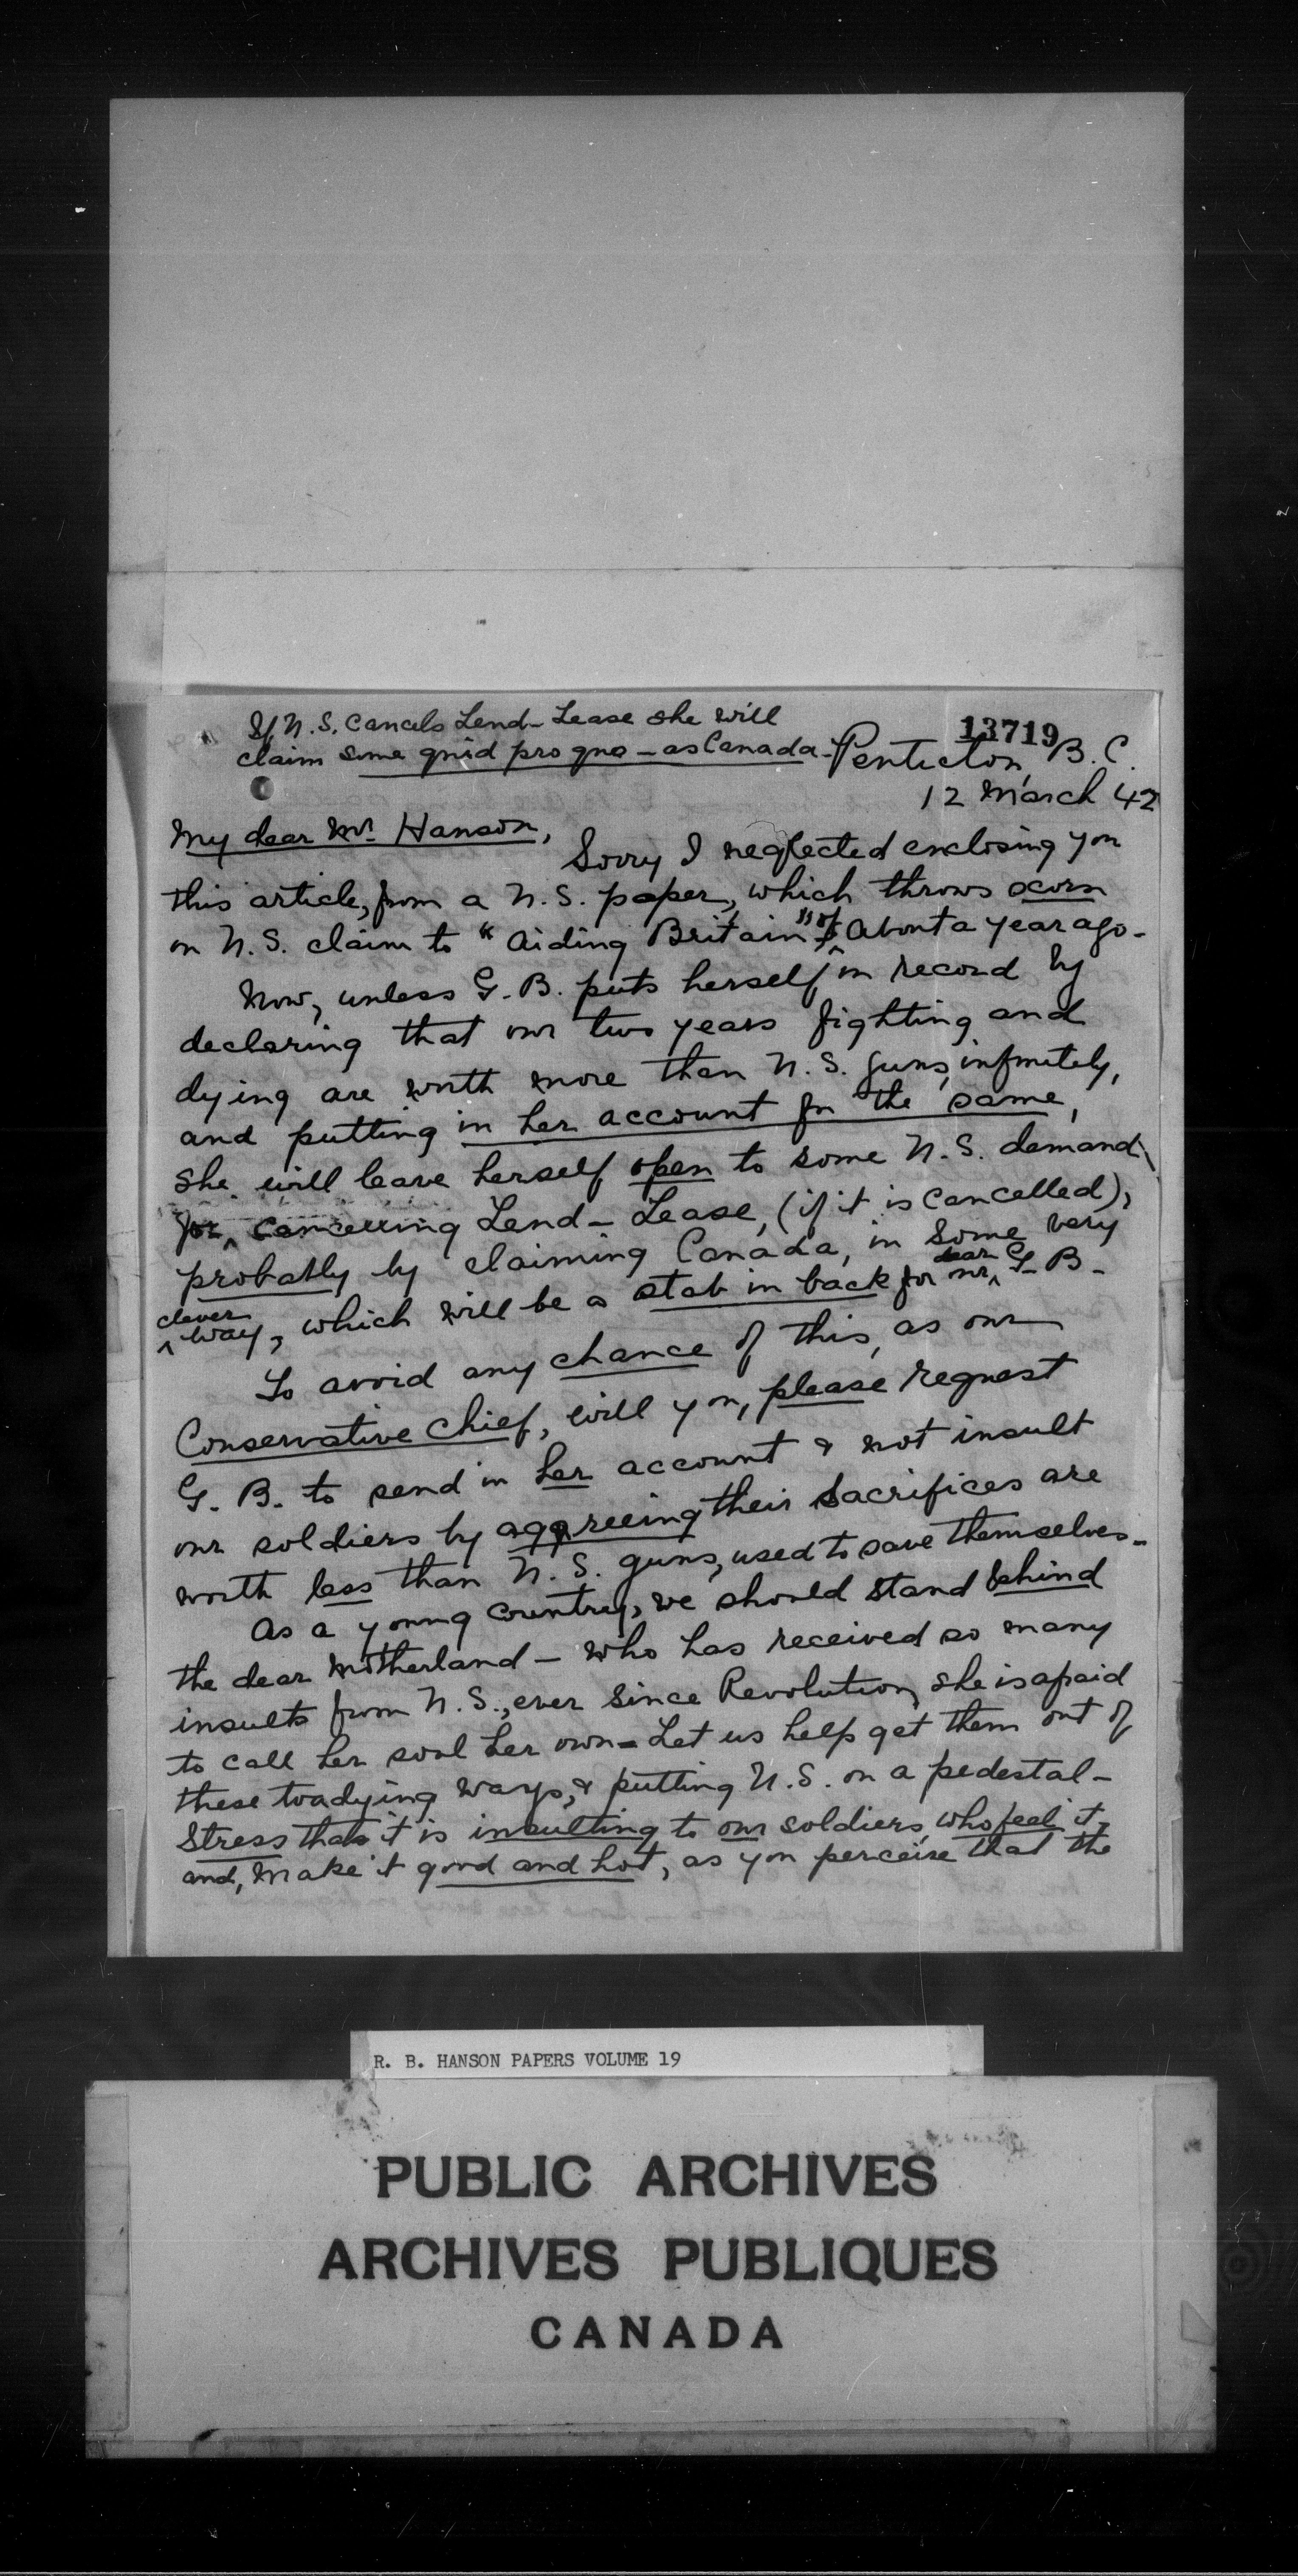 If U.S. cancels Lend-Lease she will
claim some quid pro quo – as Canada –
13719
Penticton, B.C.
12 March 42
My dear Mr. Hanson,
Sorry I neglected enclosing you
this article, from a U.S. paper, which throws scorn
on U.S. claim to "Aiding Britain" of about a year ago.
Now, unless G.B. puts herself on record by
declaring that our two years fighting and
dying are worth more than U.S. guns, infinitely,
and putting in her account for the same,
she will leave herself open to some U.S. demand
for cancelling Lend-Lease, (if it is cancelled),
probably by claiming Canada, in some very
clever way, which will be a stab in back for our dear G.B.
To avoid any chance of this, as our
Conservative Chief, will you, please request
G.B. to send in her account & not insult
our soldiers by aggreeing their sacrifices are
worth less than U.S. guns, used to save themselves –
As a young country, we should stand behind
the dear Motherland – who has received so many
insults from U.S., ever since Revolution, she is afraid
to call her soul her own – Let us help get them out of
these toadying ways, & putting U.S. on a pedestal –
Stress that it is insulting to our soldiers, who feel it,
and, make it good and hot, as you perceive that the
R. B. HANSON PAPERS VOLUME 19
PUBLIC ARCHIVES
ARCHIVES PUBLIQUES
CANADA